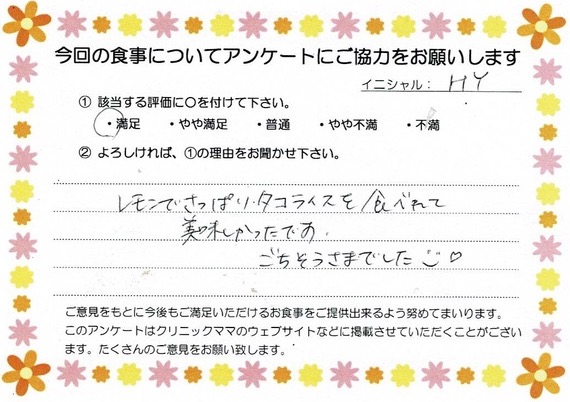 今回の食事についてアンケートにご協力をお願いします
イニシャル： HY
① 該当する評価に○を付けて下さい。
・満足 ・やや満足 ・普通 ・やや不満 ・不満
② よろしければ、①の理由をお聞かせ下さい。
レモンでさっぱり、タコライスを食べれて
美味しかったです。
ごちそうさまでした♡
ご意見をもとに今後もご満足いただけるお食事をご提供出来るよう努めてまいります。
このアンケートはクリニックママのウェブサイトなどに掲載させていただくことがござい
ます。たくさんのご意見をお願い致します。